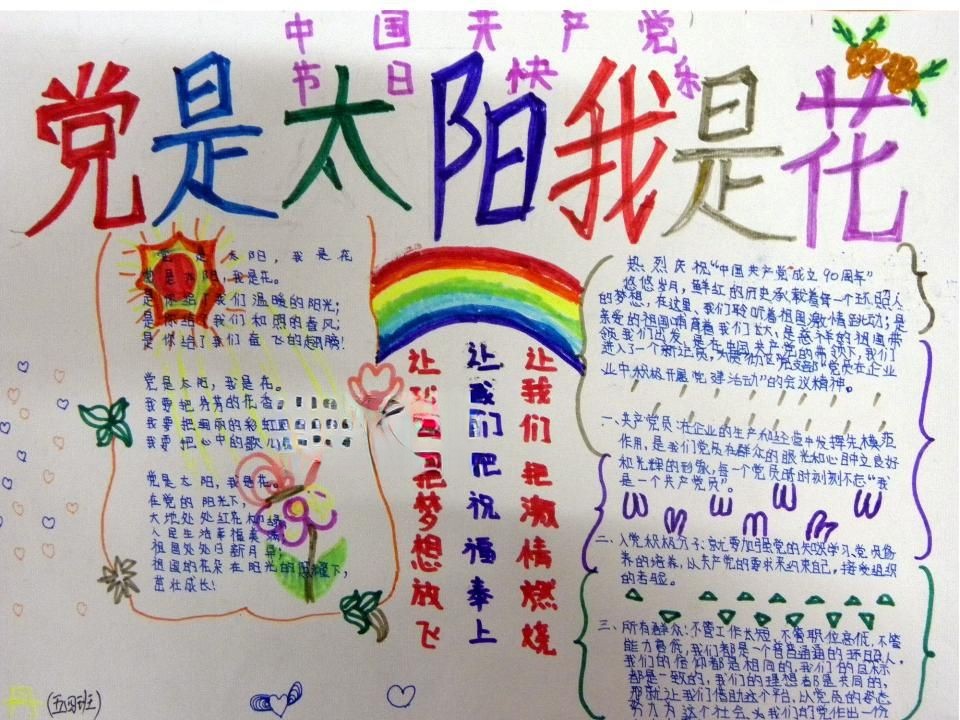 中国共产党
节日快乐
党是太阳我是花
党是太阳,我是花
党是太阳,我是花。
是你给了我们温暖的阳光;
是你给了我们和煦的春风;
是你给了我们奋飞的翅膀!
党是太阳,我是花。
我要把芬芳的花香
我要把绚丽的彩虹
我要把心中的歌儿
党是太阳,我是花。
在党的阳光下,
大地处处红花和绿
人民生活幸福美满
祖国处处日新月异;
祖国的花朵在阳光的照耀下,
茁壮成长!
让我们把梦想放飞
让我们把祝福奉上
让我们把激情燃烧
热烈庆祝“中国共产党成立90周年”
悠悠岁月,鲜红的历史承载着每一个环照人
的梦想,在这里,我们聆听着祖国激情跳动;是
亲爱的祖国哺育着我们长大,是慈祥的祖国带
领我们出发,是在中国共产党的带领下,我们
进入了一个新纪元,为党支部“党员在企业
业中积极开展党建活动”的会议精神。
一、共产党员:在企业的生产和经营中发挥先模范
作用,是我们党员在群众的眼光和心目中立良好
和光辉的形象,每一个党员时时刻刻不忘“我
是一个共产党员”。
二、入党积极分子:就要加强党的知识学习,党员修
养的培养,以共产党的要求来约束自己,接受组织
的考验。
三、所有群众:不管工作长短,不管职位高低,不管
能力高低,我们都是一个普普通通的环照人,
我们的信仰都是相同的,我们的目标
都是一致的,我们的理想都是共同的,
那就让我们借助这个平台,以党员的姿态
努力为这个社会、为我们的党作出一份
(五四班)